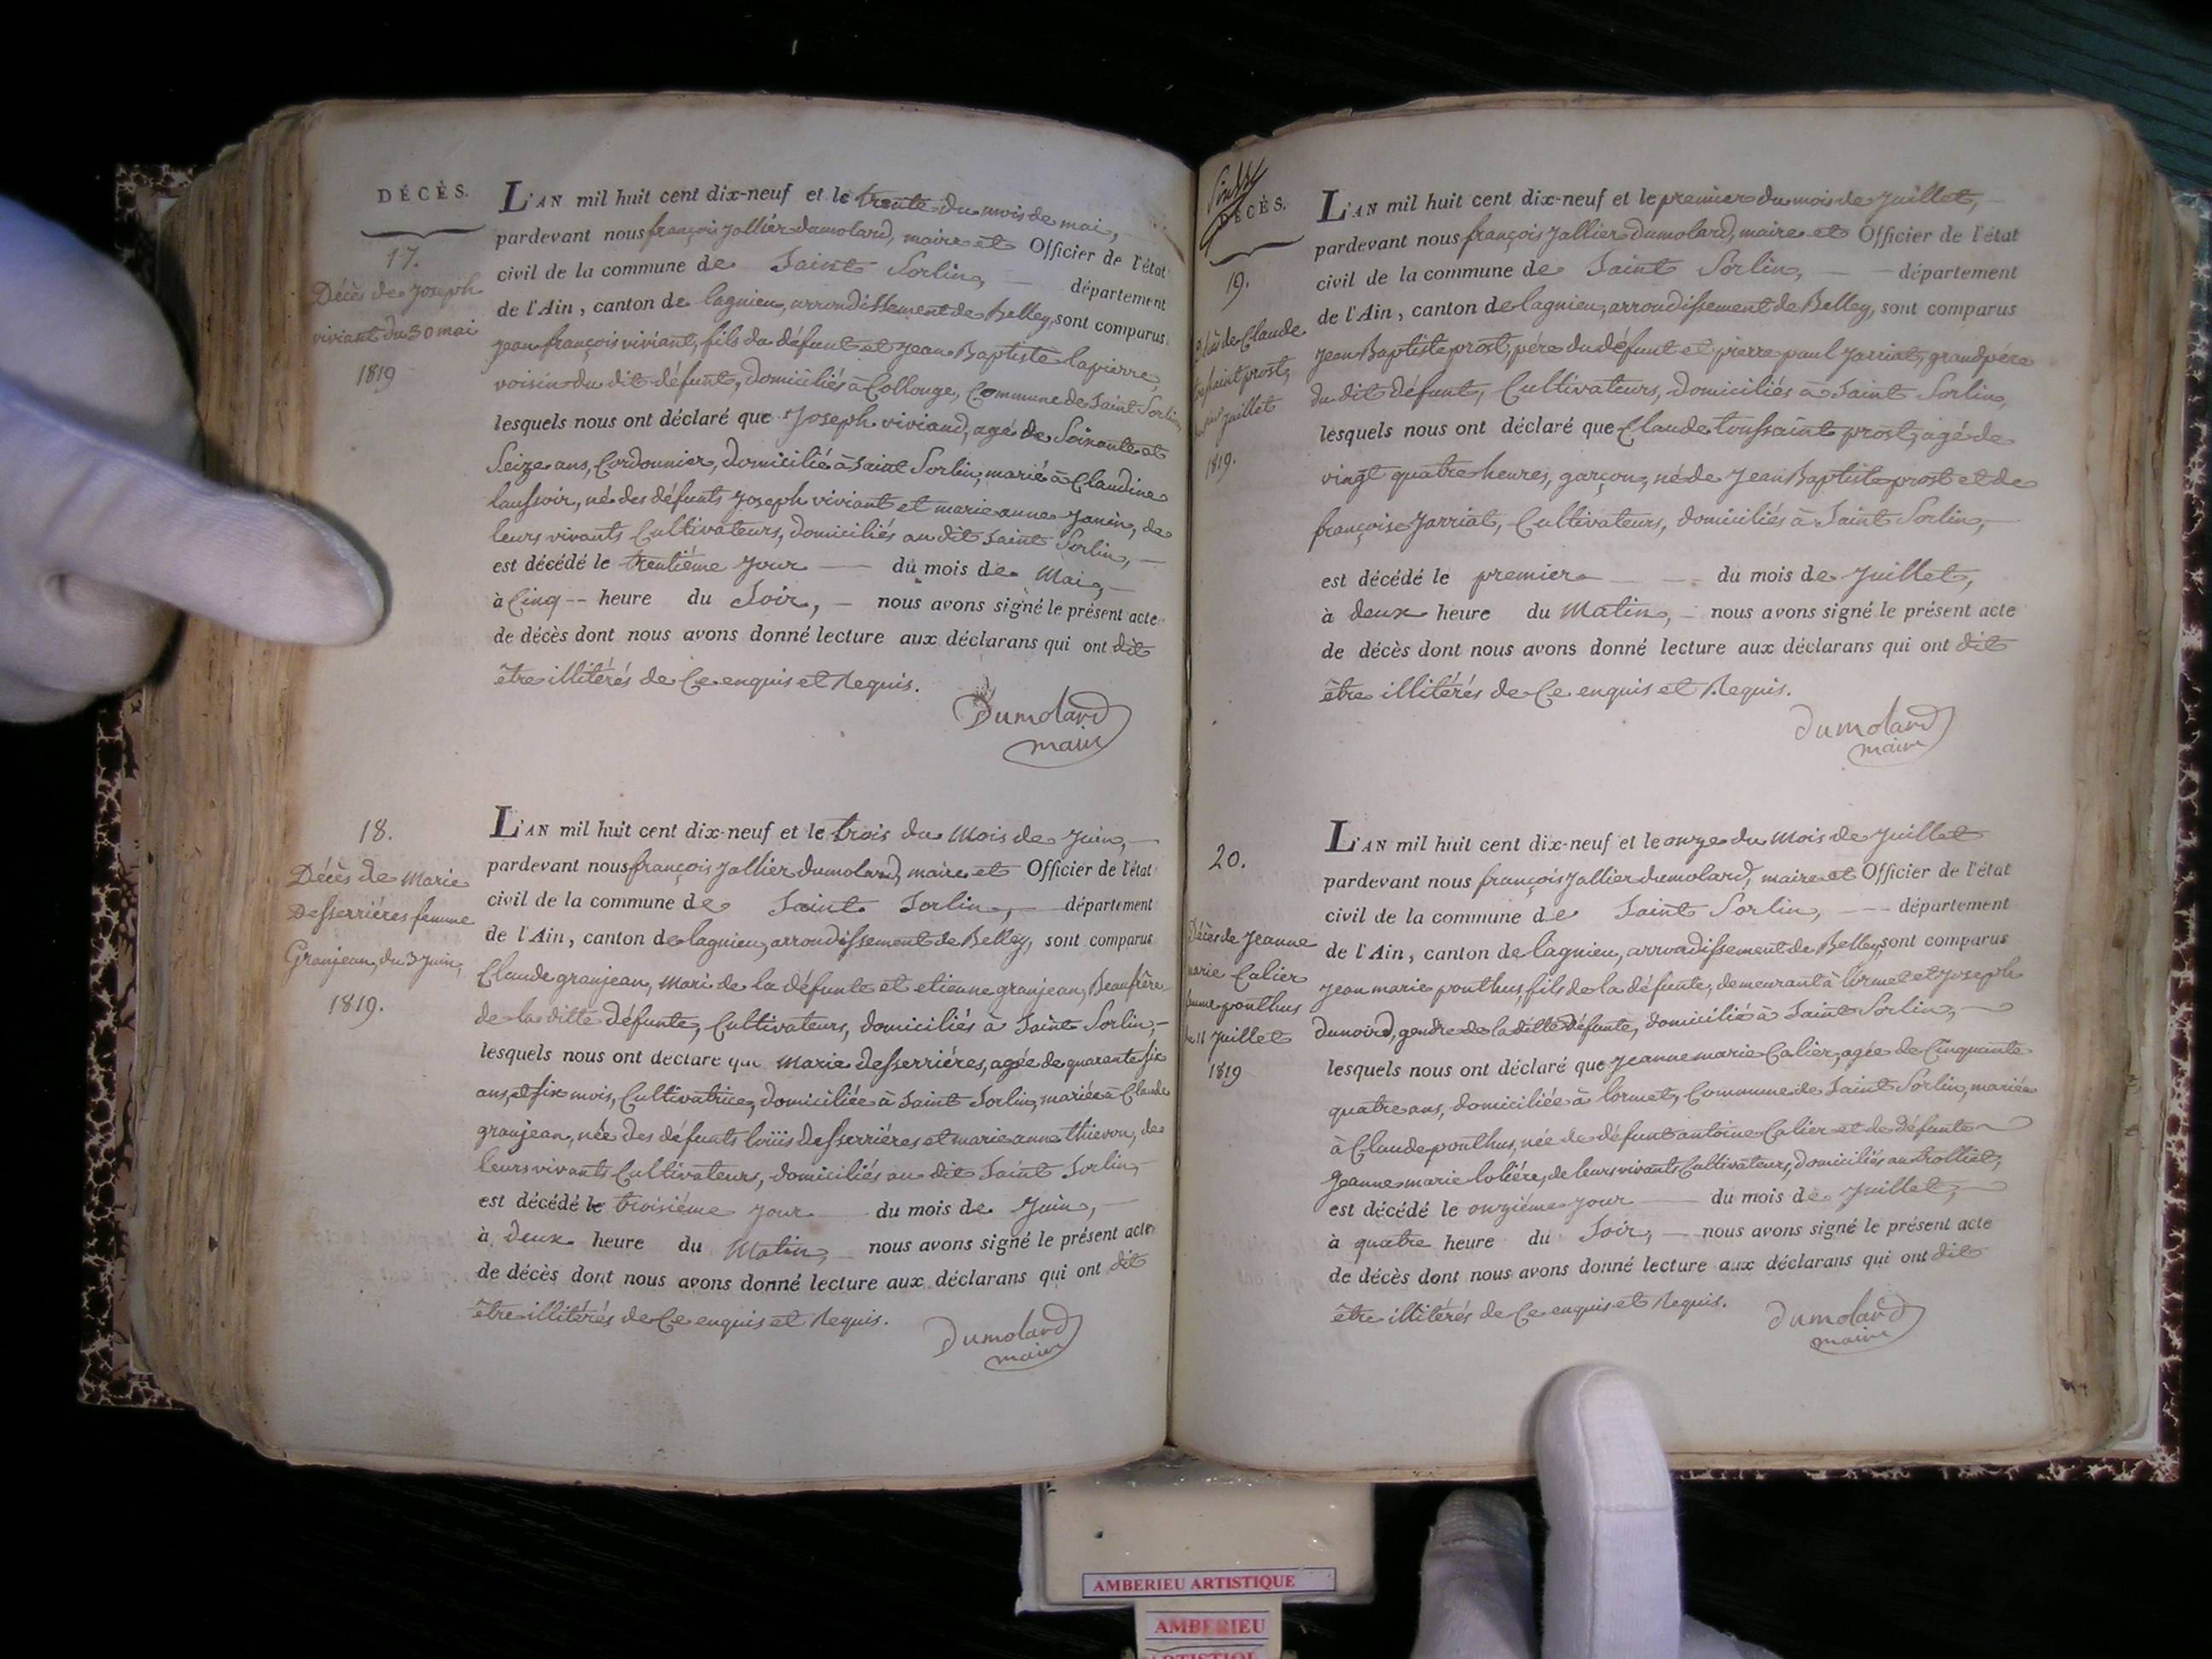 DÉCÈS.
17.
Décès de Joseph
viviant du 30 mai
1819
L'AN mil huit cent dix-neuf et le trente du mois de mai,
pardevant nous françois Jallier dumolard, maire et Officier de l'état
civil de la commune de Saint Sorlin, département
de l'Ain, canton de lagnieu, arrondissement de Belley, sont comparus
jean françois viviant, fils du défunt et jean Baptiste lapierre,
voisin du dit défunt, domiciliés à Collonge, Commune de Saint Sorlin,
lesquels nous ont déclaré que Joseph viviand, agé de Soixante et
Seize ans, Cordonnier, domicilié à Saint Sorlin, marié à Claudine
, né des défunts Joseph viviant et marie anne Janin, de
leurs vivants Cultivateurs, domiciliés au dit Saint Sorlin,
est décédé le trentième jour du mois de Mai,
à Cinq heure du Soir, nous avons signé le présent acte
de décès dont nous avons donné lecture aux déclarans qui ont dit
être illitérés de Ce enquis et Requis.
Dumolard
maire
18.
Décès de Marie
Desserriéres femme
Granjean, du 3 Juin,
1819.
L'AN mil huit cent dix-neuf et le trois du Mois de Juin,
pardevant nous françois Jallier dumolard, maire et Officier de l'état
civil de la commune de Saint Sorlin, département
de l'Ain, canton de lagnieu, arrondissement de Belley, sont comparus
Claude granjean, mari de la défunte et etienne granjean, Beaufrère
de la ditte défunte, Cultivateurs, domiciliés à Saint Sorlin,
lesquels nous ont déclaré que Marie Desserriéres, agée de quarante six
ans, et six mois, Cultivatrice, domiciliée à Saint Sorlin, mariée à Claude
granjean, née des défunts loüis desserriéres et marie anne thievon, de
leurs vivants Cultivateurs, domiciliés au dit Saint Sorlin,
est décédé le troisiéme jour du mois de Juin,
à deux heure du Matin, nous avons signé le présent acte
de décès dont nous avons donné lecture aux déclarans qui ont dit
être illitérés de Ce enquis et Requis.
Dumolard
maire
DÉCÈS.
19.
de Claude
prost,
juillet
1819.
L'AN mil huit cent dix-neuf et le premier du mois de Juillet,
pardevant nous françois Jallier dumolard, maire et Officier de l'état
civil de la commune de Saint Sorlin, département
de l'Ain, canton de lagnieu, arrondissement de Belley, sont comparus
Jean Baptiste prost, pére du défunt et pierre paul Jarriat, grand pére
du dit défunt, Cultivateurs, domiciliés à Saint Sorlin,
lesquels nous ont déclaré que Claude toussaint prost, agé de
vingt quatre heures, garçon, né de Jean Baptiste prost et de
françoise Jarriat, Cultivateurs, domiciliés à Saint Sorlin,
est décédé le premier du mois de Juillet,
à deux heure du Matin, nous avons signé le présent acte
de décès dont nous avons donné lecture aux déclarans qui ont dit
être illitérés de Ce enquis et Requis.
dumolard
maire
20.
Décès de Jeanne
marie Calier
femme ponthus
le 11 Juillet
1819
L'AN mil huit cent dix-neuf et le onze du Mois de Juillet
pardevant nous françois Jallier dumolard, maire et Officier de l'état
civil de la commune de Saint Sorlin, département
de l'Ain, canton de lagnieu, arrondissement de Belley, sont comparus
Jean marie ponthus, fils de la défunte, demeurant à lormet et Joseph
dunoird, gendre de la ditte défunte, domicilié à Saint Sorlin,
lesquels nous ont déclaré que Jeanne marie Calier, agée de Cinquante
quatre ans, domiciliée à lormet, Commune de Saint Sorlin, mariée
à Claude ponthus, née de défunt antoine Calier et de défunte
Jeanne marie loliére, de leurs vivants Cultivateurs, domiciliés au trolliet,
est décédé le onziéme jour du mois de Juillet,
à quatre heure du Soir, nous avons signé le présent acte
de décès dont nous avons donné lecture aux déclarans qui ont dit
être illitérés de Ce enquis et Requis.
Dumolard
maire
AMBERIEU ARTISTIQUE
AMBERIEU
ARTISTIQUE